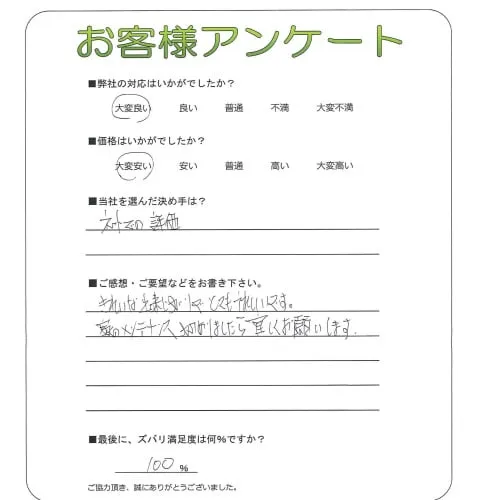 お客様アンケート
■弊社の対応はいかがでしたか？
大変良い 良い 普通 不満 大変不満
■価格はいかがでしたか？
大変安い 安い 普通 高い 大変高い
■当社を選んだ決め手は？
ネットでの 評価
■ご感想・ご要望などをお書き下さい。
きれいな とてもうれしいです。
メンテナンス ましたら宜しくお願いします.
■最後に、ズバリ満足度は何%ですか？
100 %
ご協力頂き、誠にありがとうございました。